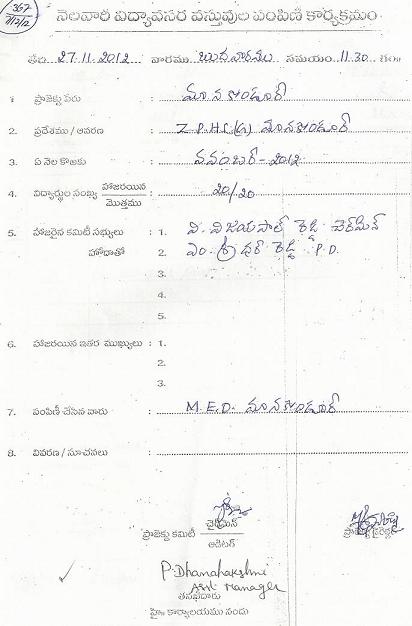 367
7/12/12
నెలవారి విద్యావసర వస్తువుల పంపిణీ కార్యక్రమం
తేది 27.11.2012 వారము బుధవారము సమయం 11.30 గం॥
1 ప్రాజెక్టు పేరు : మానకొండూర్
2. ప్రదేశము / ఆవరణ : Z.P.H.S(G) మానకొండూర్
3. ఏ నెల కొరకు : నవంబర్ - 2012
4. విద్యార్థుల సంఖ్య హాజరయిన / మొత్తము : 20/20
5. హాజరైన కమిటీ సభ్యులు : 1. వి. విజయపాల్ రెడ్డి చైర్మెన్
హోదాతో 2. ఎం. శ్రీధర్ రెడ్డి P.D.
3.
4.
5.
6. హాజరయిన ఇతర ముఖ్యులు : 1.
2.
3.
7. పంపిణీ చేసిన వారు : M.E.D. మానకొండూర్
8. వివరణ / సూచనలు :
చైర్మెన్
ప్రాజెక్టు కమిటీ
ఆడిటర్
ప్రాజెక్టు డైరెక్టర్
P. Dhanalakshmi
Asst Manager
తనఖీదారు
హై॥ కార్యాలయము నందు